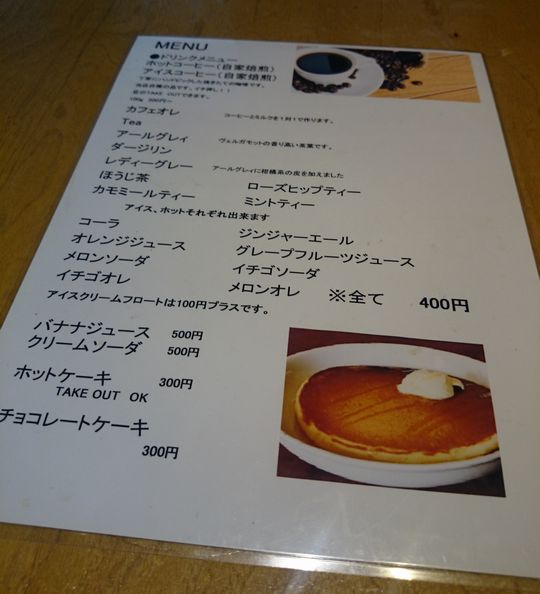 MENU
●ドリンクメニュー
ホットコーヒー(自家焙煎)
アイスコーヒー(自家焙煎)
丁寧にハンドピックした焼きたての珈琲です。
当店自慢の品です。イチ押し!!
豆のTAKE OUTできます。
100g 500円~
カフェオレ コーヒーとミルクを1対1で作ります。
Tea
アールグレィ ヴェルガモットの香り高い茶葉です。
ダージリン
レディーグレー アールグレィに柑橘系の皮を加えました
ほうじ茶 ローズヒップティー
カモミールティー ミントティー
アイス、ホットそれぞれ出来ます
コーラ ジンジャーエール
オレンジジュース グレープフルーツジュース
メロンソーダ イチゴソーダ
イチゴオレ メロンオレ ※全て 400円
アイスクリームフロートは100円プラスです。
バナナジュース 500円
クリームソーダ 500円
ホットケーキ 300円
TAKE OUT OK
チョコレートケーキ
300円